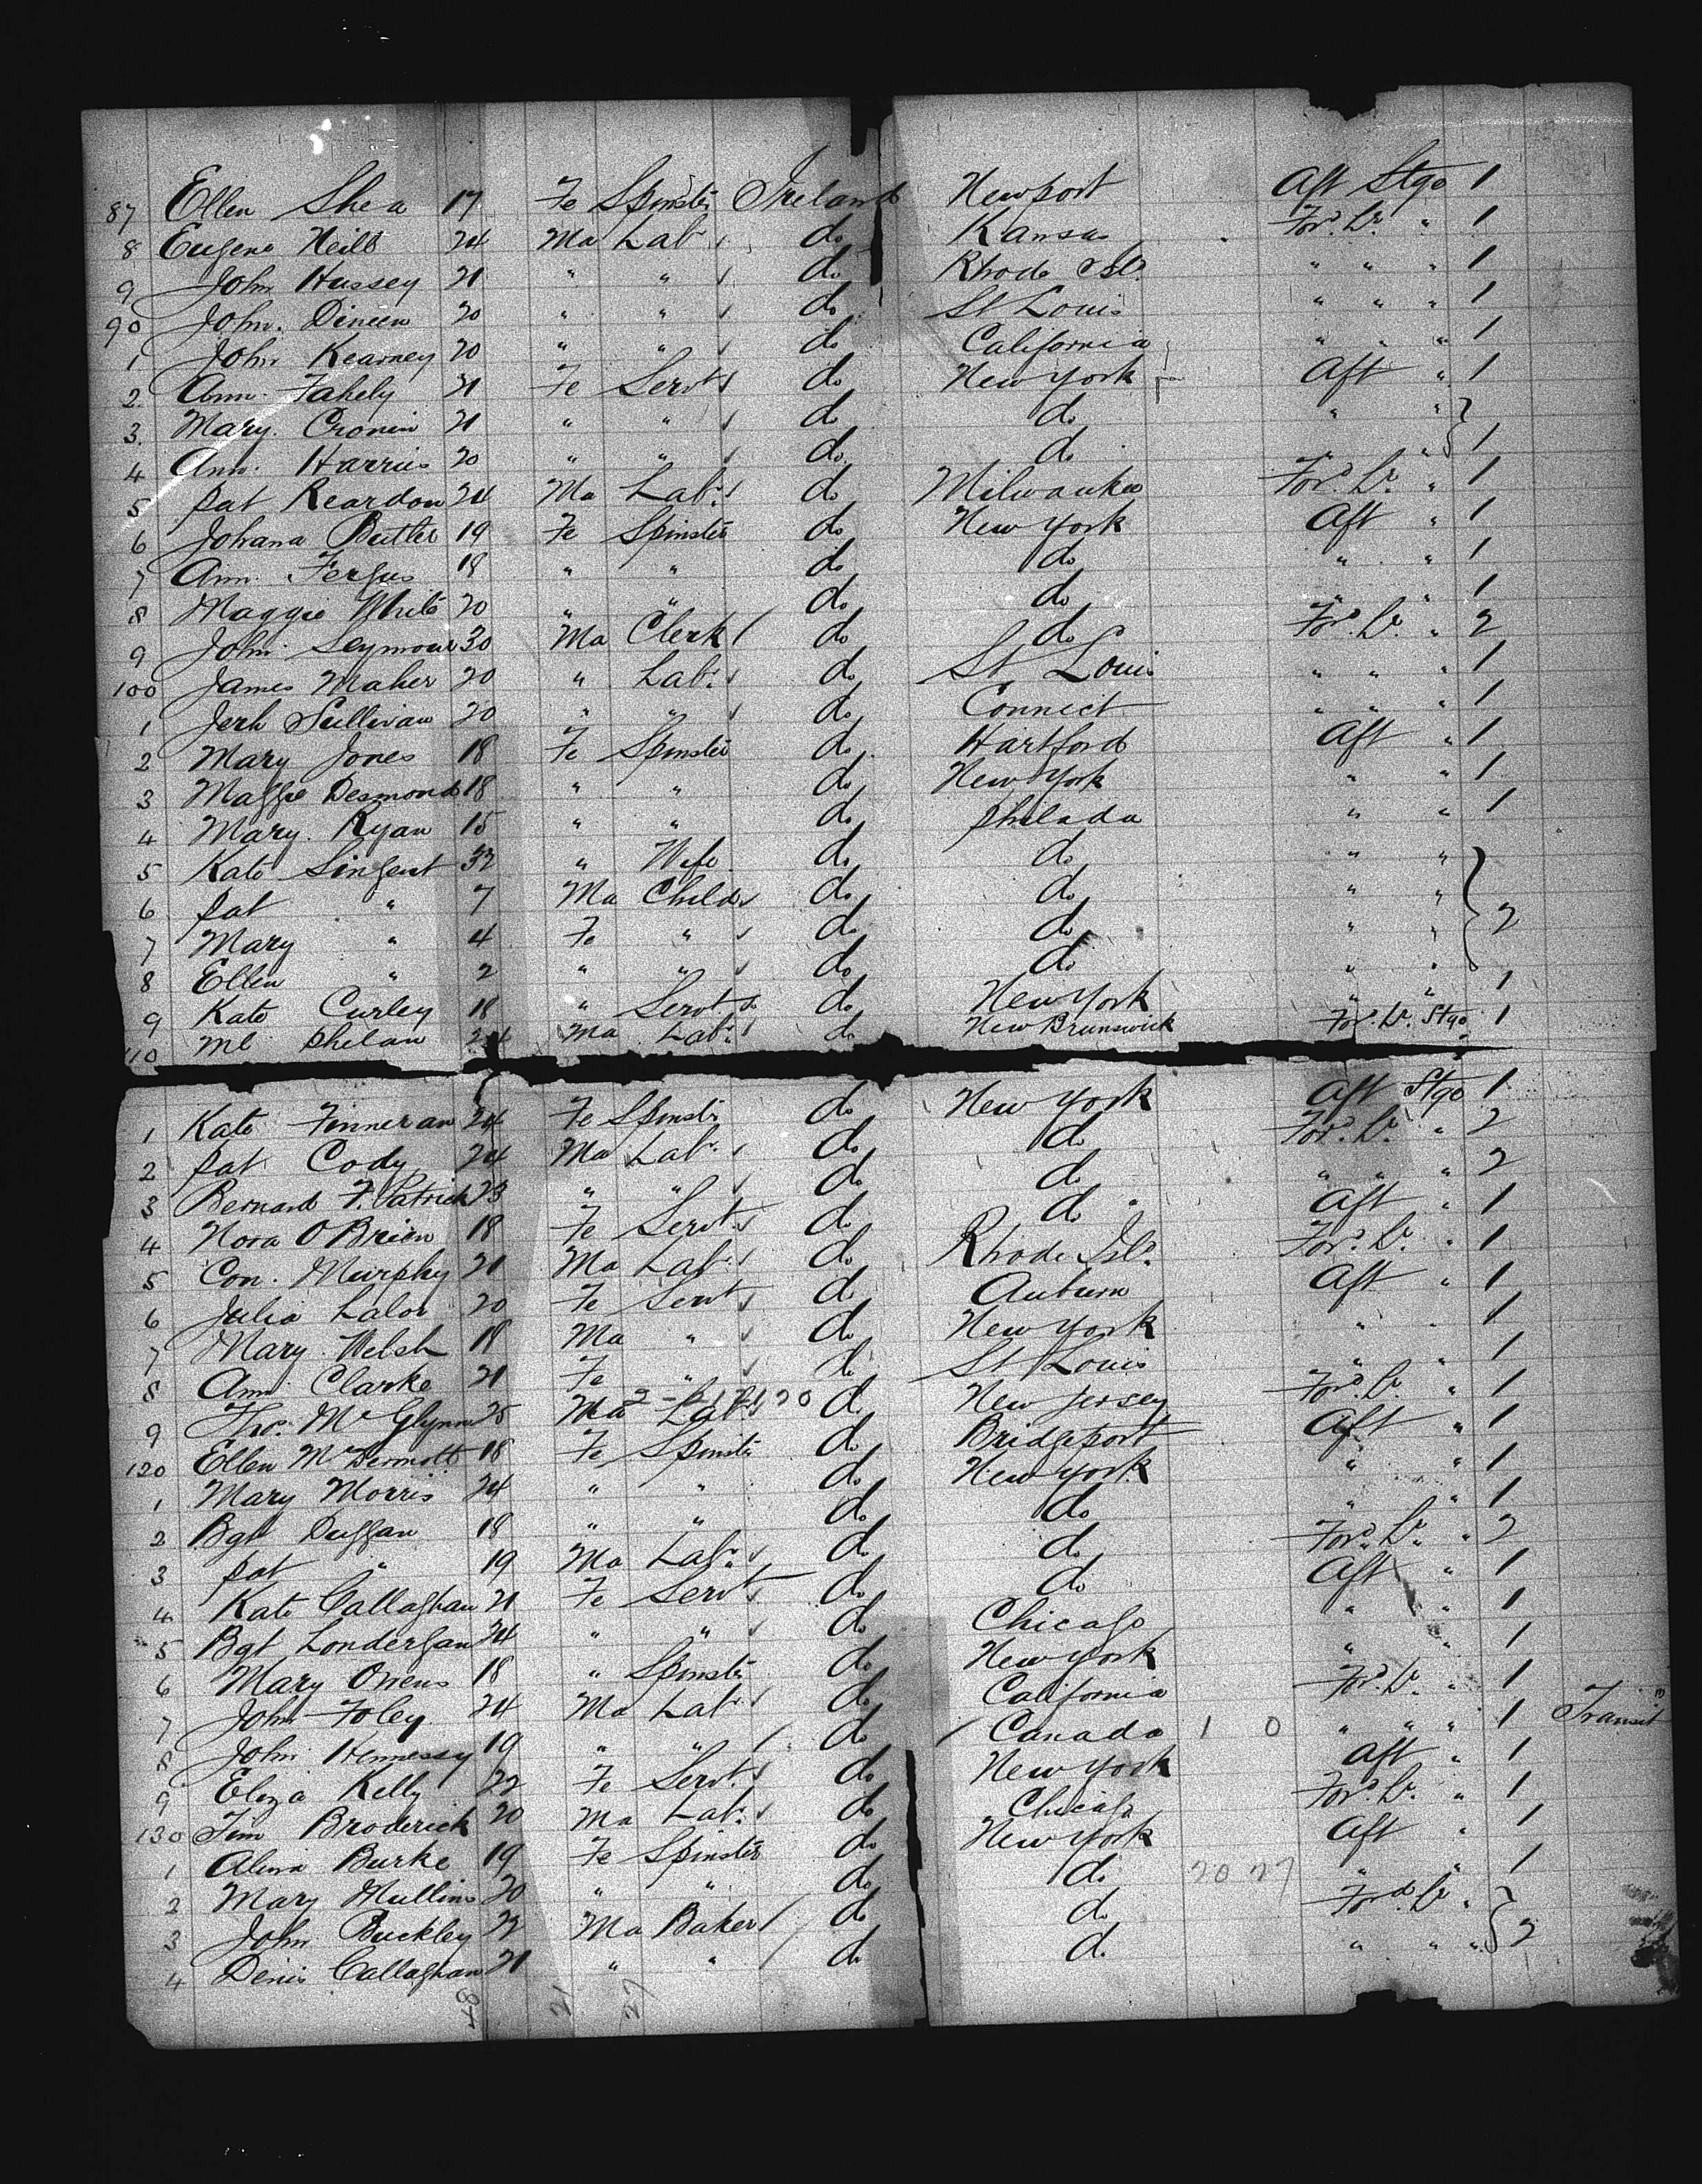 87 Ellen Shea 17 Fe Spinster Ireland Newport Aft Stge 1
8 Eugene Neill 24 Ma Labr do Kansas Ford Dk " 1
9 John Hussey 21 " " do Rhode Isld " " " 1
90 John Dineen 20 " " do St Louis " " " 1
1 John Kearney 20 " " do California " " " 1
2 Ann Fahely 21 Fe Servt do New York Aft " 1
3 Mary Cronin 21 " " do do " "
4 Ann Harris 20 " " do do " " 1
5 Pat Reardon 24 Ma Labr do Milwaukee Ford Dk " 1
6 Johana Butler 19 Fe Spinster do New York Aft " 1
7 Ann Fergus 18 " " do do " " 1
8 Maggie 20 " " do do " " 1
9 John Seymour 30 Ma Clerk do do Ford Dk " 2
100 James Maher 20 " Labr do St Louis " " " 1
1 Jerh Sullivan 20 " " do Connect " " " 1
2 Mary Jones 18 Fe Spinster do Hartford Aft " 1
3 Maggie Desmond 18 " " do New York " " 1
4 Mary Ryan 15 " " do Philada " " 1
5 Kate Singent 32 " Wife do do " "
6 Pat " 7 Ma Child do do " "
7 Mary " 4 Fe " do do " " 2
8 Ellen " 2 " " do do " "
9 Kate Curley 18 " Servt do New York " " 1
110 Ml Phelan 24 Ma Labr do New Brunswick Ford Dk Stge 1
1 Kate Finneran 24 Fe Spinster do New York Aft Stge 1
2 Pat Cody 24 Ma Labr do do Ford Dk " 2
3 Bernard F. Patrick 23 " " do do " " " 2
4 Nora O Brien 18 Fe Servt do do Aft " 1
5 Con. Murphy 21 Ma Labr do Rhode Isld Ford Dk " 1
6 Julia Lalor 20 Fe Servt do Auburn Aft " 1
7 Mary Welsh 18 Ma " do New York " " 1
8 Ann Clarke 21 Fe " do St Louis " " 1
9 Thos McGlynn 25 Ma Labr do New Jersey Ford Dk " 1
120 Ellen McDermott 18 Fe Spinster do Bridgeport Aft " 1
1 Mary Morris 24 " " do New York " " 1
2 Bgt Duggan 18 " " do do " " 1
3 Pat " 19 Ma Labr do do Ford Dk " 2
4 Kate Callaghan 21 Fe Servt do do Aft " 1
5 Bgt Londergan 24 " " do Chicago " " 1
6 Mary Owens 18 " Spinster do New York " " 1
7 John Foley 24 Ma Labr do California Ford Dk " 1
8 John Hennessy 19 " " do Canada 1 0 " " " 1 Transit
9 Eliza Kelly 22 Fe Servt do New York Aft " 1
130 Jim Broderick 20 Ma Labr do Chicago Ford Dk " 1
1 Burke 19 Fe Spinster do New York Aft " 1
2 Mary Mullins 20 " " do do 20 27 " " 1
3 John Buckley 22 Ma Baker do do Ford Dk "
4 Denis Callaghan 21 " " do do " " " 2
48 21 27